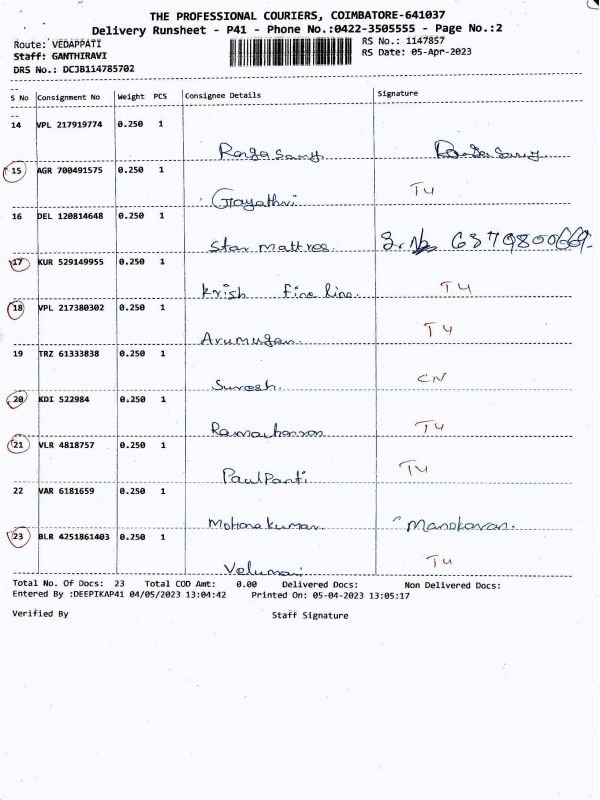 THE PROFESSIONAL COURIERS, COIMBATORE-641037
Delivery Runsheet - P41 - Phone No.:0422-3505555 - Page No.:2
Route: VEDAPPATI
RS No.: 1147857
Staff: GANTHIRAVI
RS Date: 05-Apr-2023
DRS No.: DCJB114785702
S No Consignment No Weight PCS Consignee Details Signature
14 VPL 217919774 0.250 1
15 AGR 700491575 0.250 1
Gayathri T4
16 DEL 120814648 0.250 1
Star mattres
17 KUR 529149955 0.250 1
Krish fine line. T4
18 VPL 217380302 0.250 1
Arumugan. T4
19 TRZ 61333838 0.250 1
Suresh. CN
20 KDI 522984 0.250 1
T4
21 VLR 4818757 0.250 1
PaulPanti T4
22 VAR 6181659 0.250 1
Mohanakumar. Manokaran.
23 BLR 4251861403 0.250 1
Velumani T4
Total No. Of Docs: 23 Total COD Amt: 0.00 Delivered Docs: Non Delivered Docs:
Entered By :DEEPIKAP41 04/05/2023 13:04:42 Printed On: 05-04-2023 13:05:17
Verified By Staff Signature